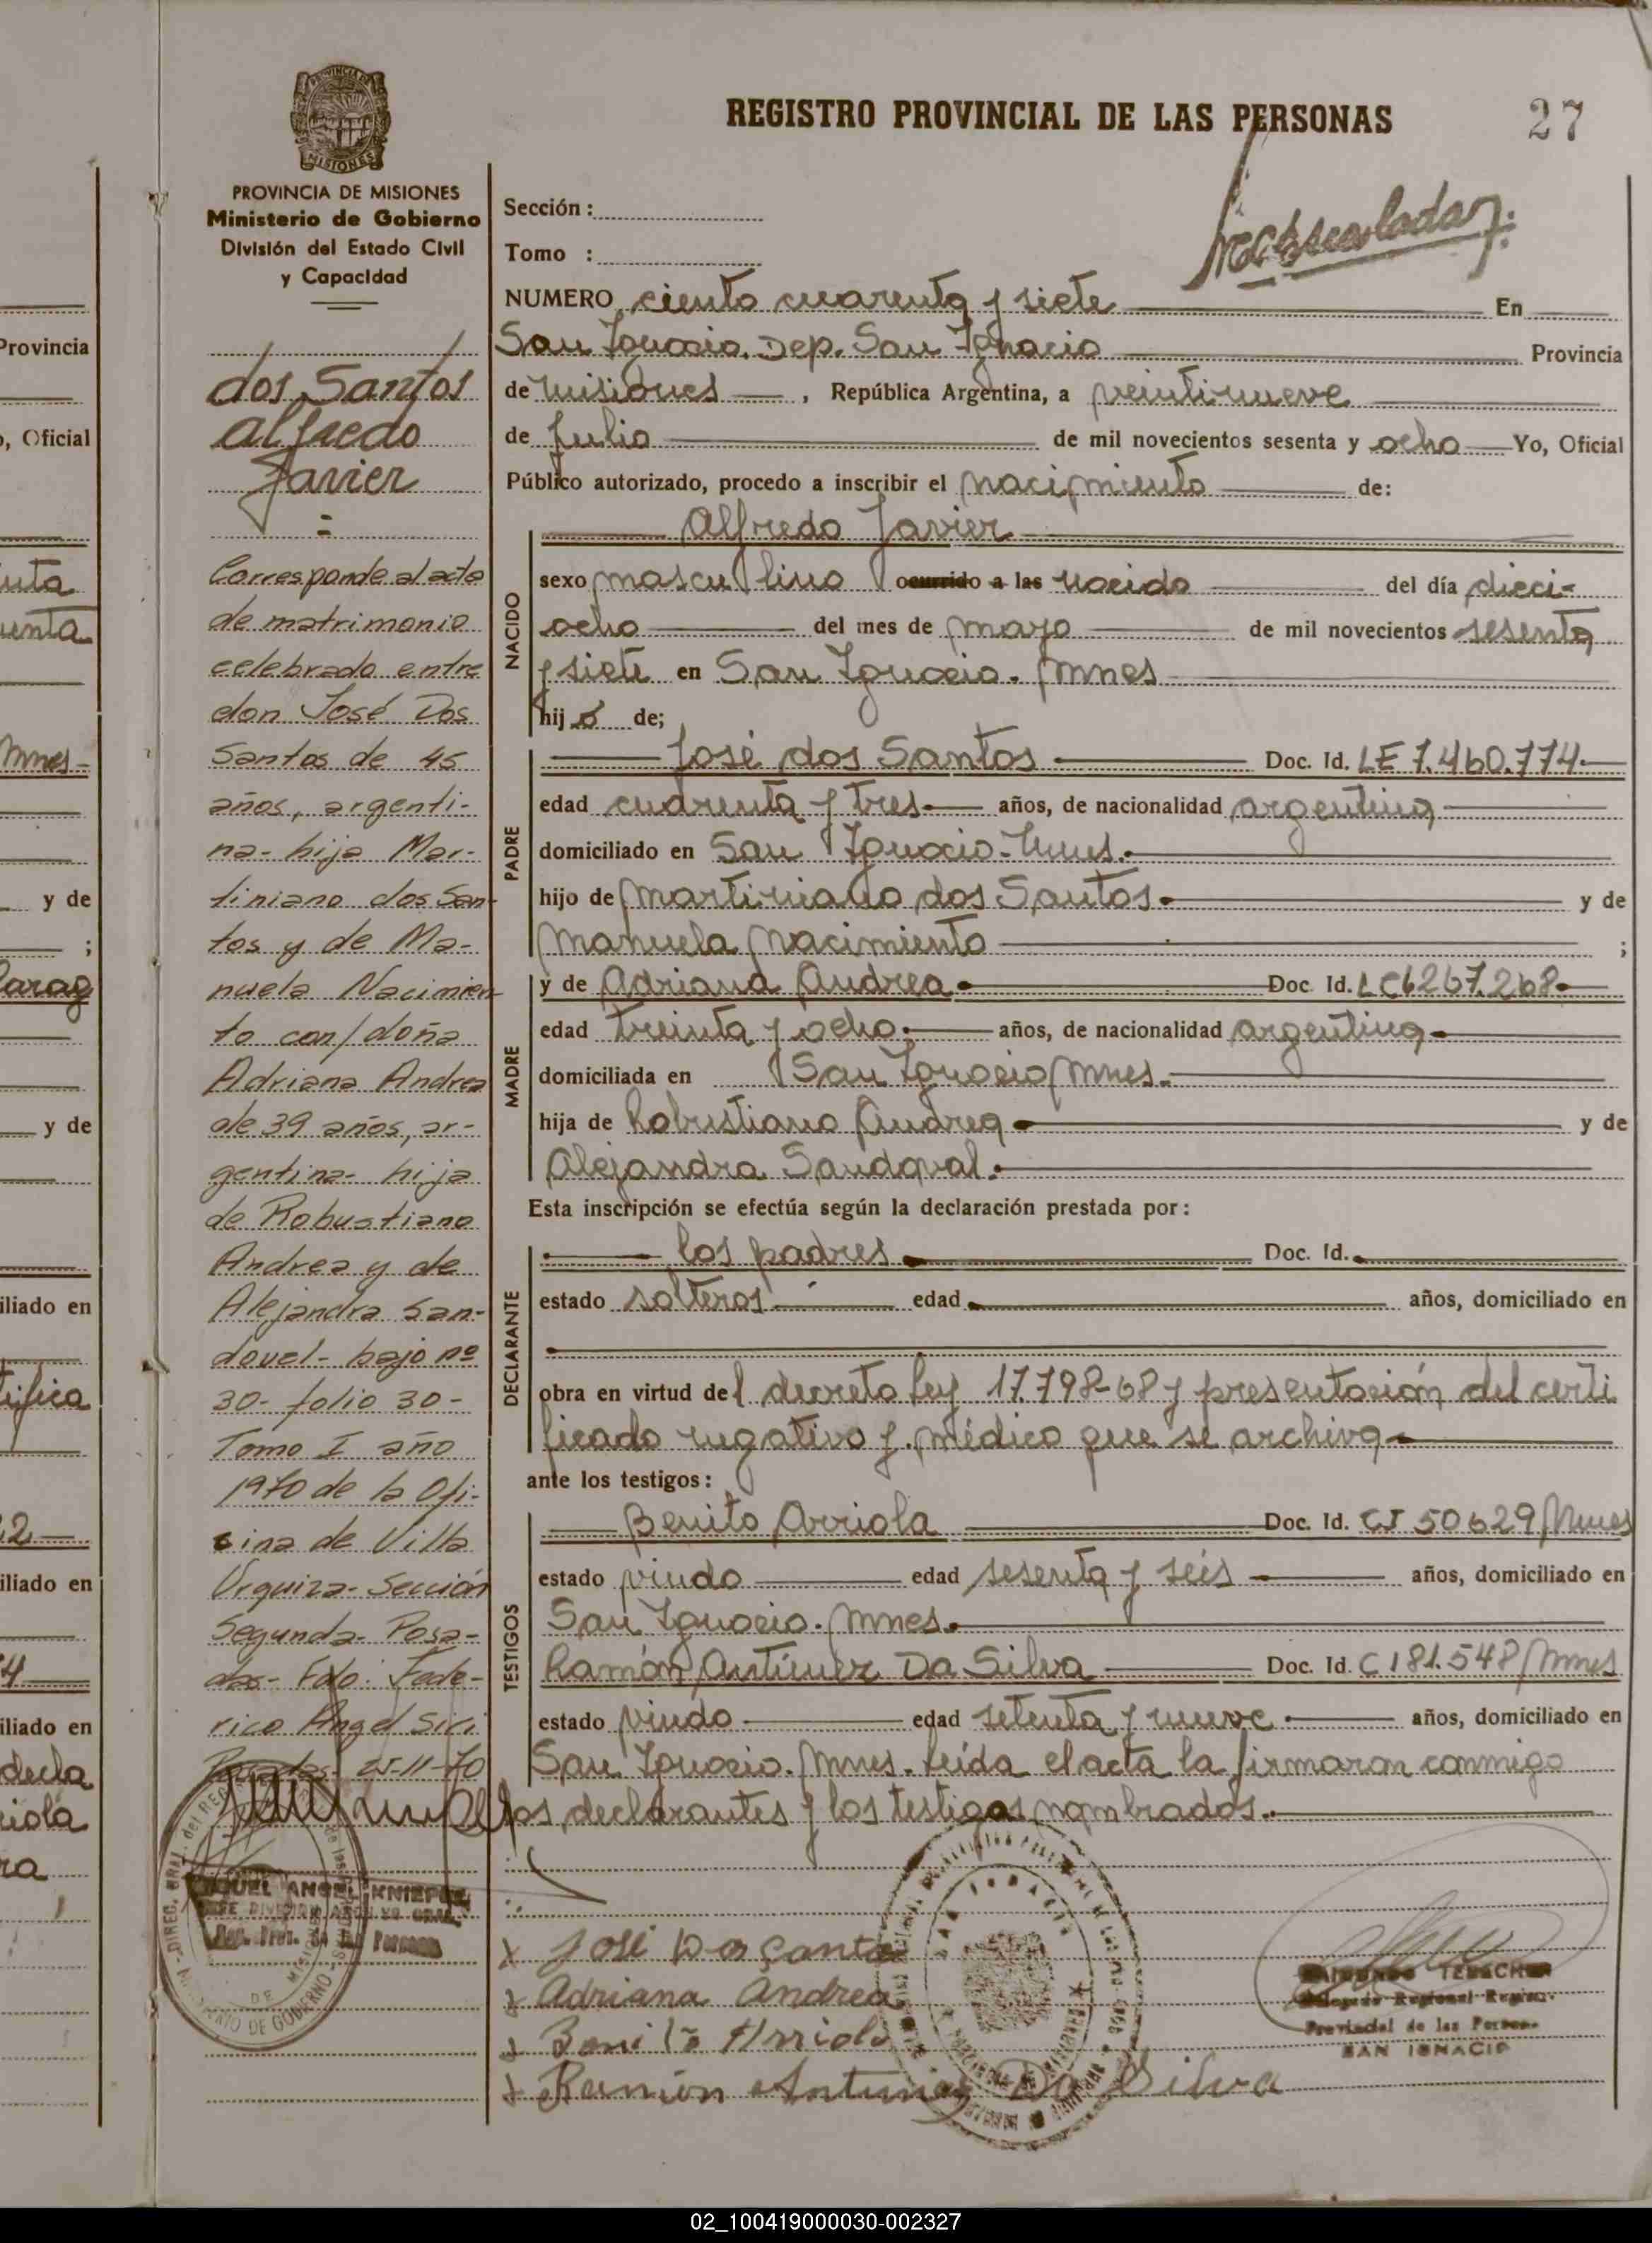 REGISTRO PROVINCIAL DE LAS PERSONAS
27
PROVINCIA DE MISIONES
Ministerio de Gobierno
División del Estado Civil
y Capacidad
dos Santos
Alfredo
Javier
Corresponde al acta
de matrimonio
celebrado entre
don José Dos
Santos de 45
años, argenti-
na- hijo Mar-
tiniano dos San-
tos y de Ma-
nuela Nacimien
to con/doña
Adriana Andrea
de 39 años, ar-
gentina- hija
de Robustiano
Andrea y de
Alejandra San-
doval- bajo nº
30- folio 30-
Tomo I año
1970 de la Ofi-
cina de Villa
Urquiza- Sección
Segunda- Posa-
das- Fdo: Fede-
rico Angel Siri
Posadas- 25-11-70
Sección :
Tomo :
NUMERO ciento cuarenta y siete En
San Ignacio. Dep. San Ignacio Provincia
de Misiones , República Argentina, a veintinueve
de Julio de mil novecientos sesenta y ocho Yo, Oficial
Público autorizado, procedo a inscribir el nacimiento de:
NACIDO
Alfredo Javier
sexo masculino ocurrido a las nacido del día dieci-
ocho del mes de mayo de mil novecientos sesenta
y siete en San Ignacio. Mnes
hijo de;
PADRE
José dos Santos Doc. Id. LE 7.460.774
edad cuarenta y tres años, de nacionalidad argentina
domiciliado en San Ignacio-Mnes.
hijo de Martiniano dos Santos y de
Manuela Nacimiento ;
MADRE
y de Adriana Andrea Doc Id. LC6267.268
edad treinta y ocho años, de nacionalidad argentina
domiciliada en San Ignacio Mnes.
hija de Robustiano Andrea y de
Alejandra Sandoval.
Esta inscripción se efectúa según la declaración prestada por :
DECLARANTE
los padres Doc. Id.
estado solteros edad años, domiciliado en
obra en virtud del decreto Ley 17.798-68 y presentación del certi
ficado negativo y médico que se archiva
ante los testigos :
TESTIGOS
Benito Arriola Doc. Id. CI 50629 Mnes
estado viudo edad sesenta y seis años, domiciliado en
San Ignacio. Mnes.
Ramón Antúnez Da Silva Doc. Id. C 181.548/Mnes
estado viudo edad setenta y nueve años, domiciliado en
San Ignacio. Mnes. Leída el acta la firmaron conmigo
los declarantes y los testigos nombrados.
x José Dos Santo
x Adriana Andrea
x Benito Arriola
x Ramón Antunez Da Silva
Provincial de las Person
SAN IGNACIO
02_100419000030-002327